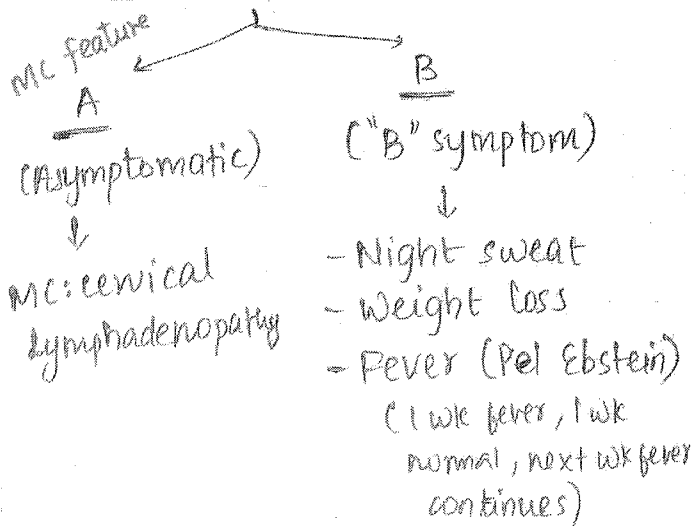 MC feature
A
(Asymptomatic)
MC: cervical
lymphadenopathy
B
("B" symptom)
- Night sweat
- Weight loss
- Fever (Pel Ebstein)
(1 wk fever, 1 wk
normal, next wk fever
continues)